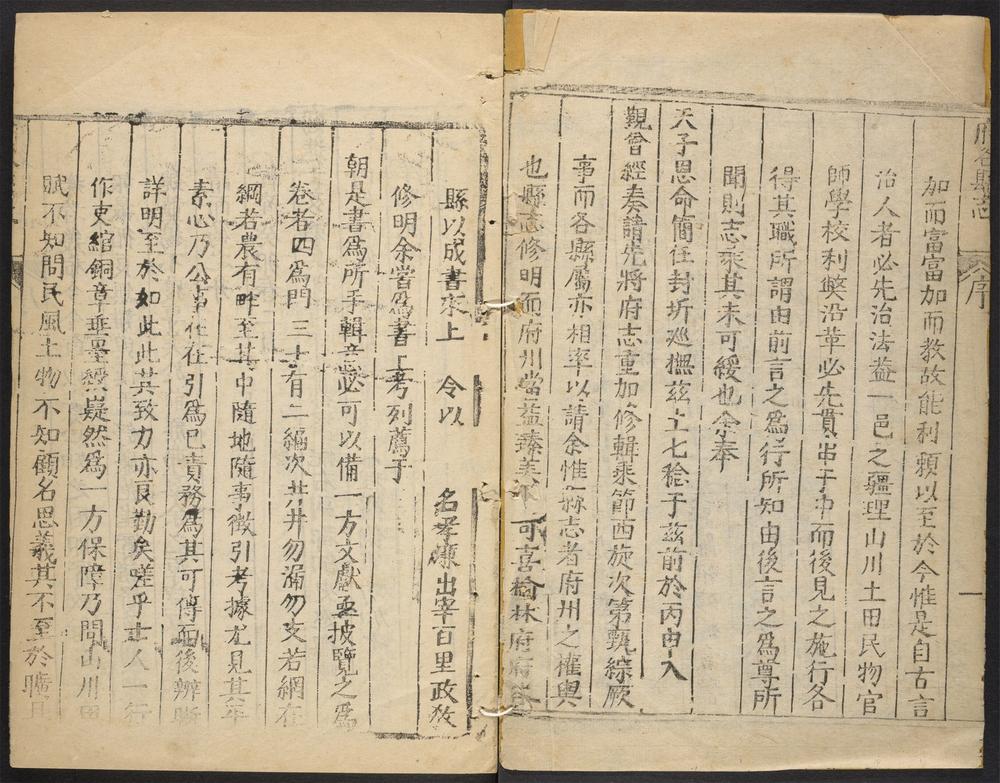 縣志
序
一
加而富富加而教故能利賴以至於今惟是自古言
治人者必先治法葢一邑之疆理山川土田民物官
師學校利弊沿革必先貫串于中而後見之施行各
得其職所謂由前言之爲行所知由後言之爲尊所
聞則志乘其未可緩也余奉
天子恩命簡任封圻巡撫茲土七稔于茲前於丙申入
覲曾經奏請先將府志重加修輯乘節西旋次第甄綜厥
事而各縣屬亦相率以請余惟縣志者府州之權輿
也縣志修明而府州當益臻美 可喜榆林府府
縣以成書來上 令以 名孝廉出宰百里政教
修明余嘗爲書上考列薦于
朝是書爲所手輯竟必可以備一方文獻 披覽之爲
卷者四爲門三十有二編次井井勿漏勿支若網在
綱若農有畔至其中隨地隨事徵引考據尤見其平
素心乃公事在在引爲已責務爲其可傳而後辨晰
詳明至於如此此其致力亦良勤矣嗟乎士人一行
作吏綰銅章垂墨綬嶷然爲一方保障乃問山川田
賦不知問民風土物不知顧名思義其不至於曠且